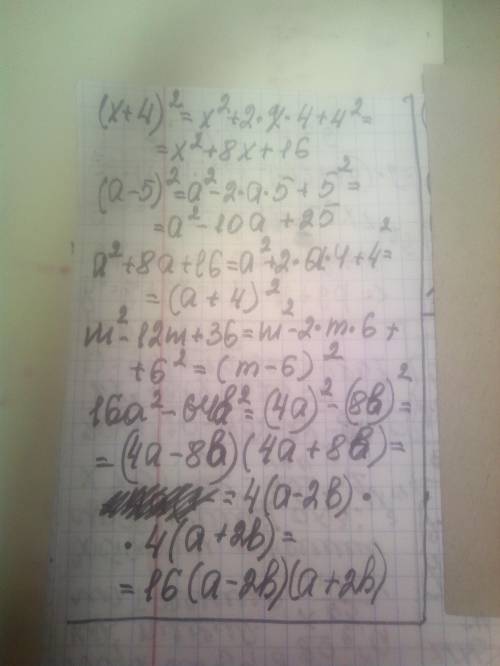 (x+4)² = x²+2·x·4+4²=
=x²+8x+16
(a-5)²=a²-2·a·5+5²=
=a²-10a+25
a²+8a+16=a²+2·a·4+4²=
=(a+4)²
m²-12m+36=m²-2·m·6+
+6²=(m-6)²
16a²-64b²=(4a)²-(8b)²=
=(4a-8b)(4a+8b)=
=4(a-2b)·
·4(a+2b)=
=16(a-2b)(a+2b)